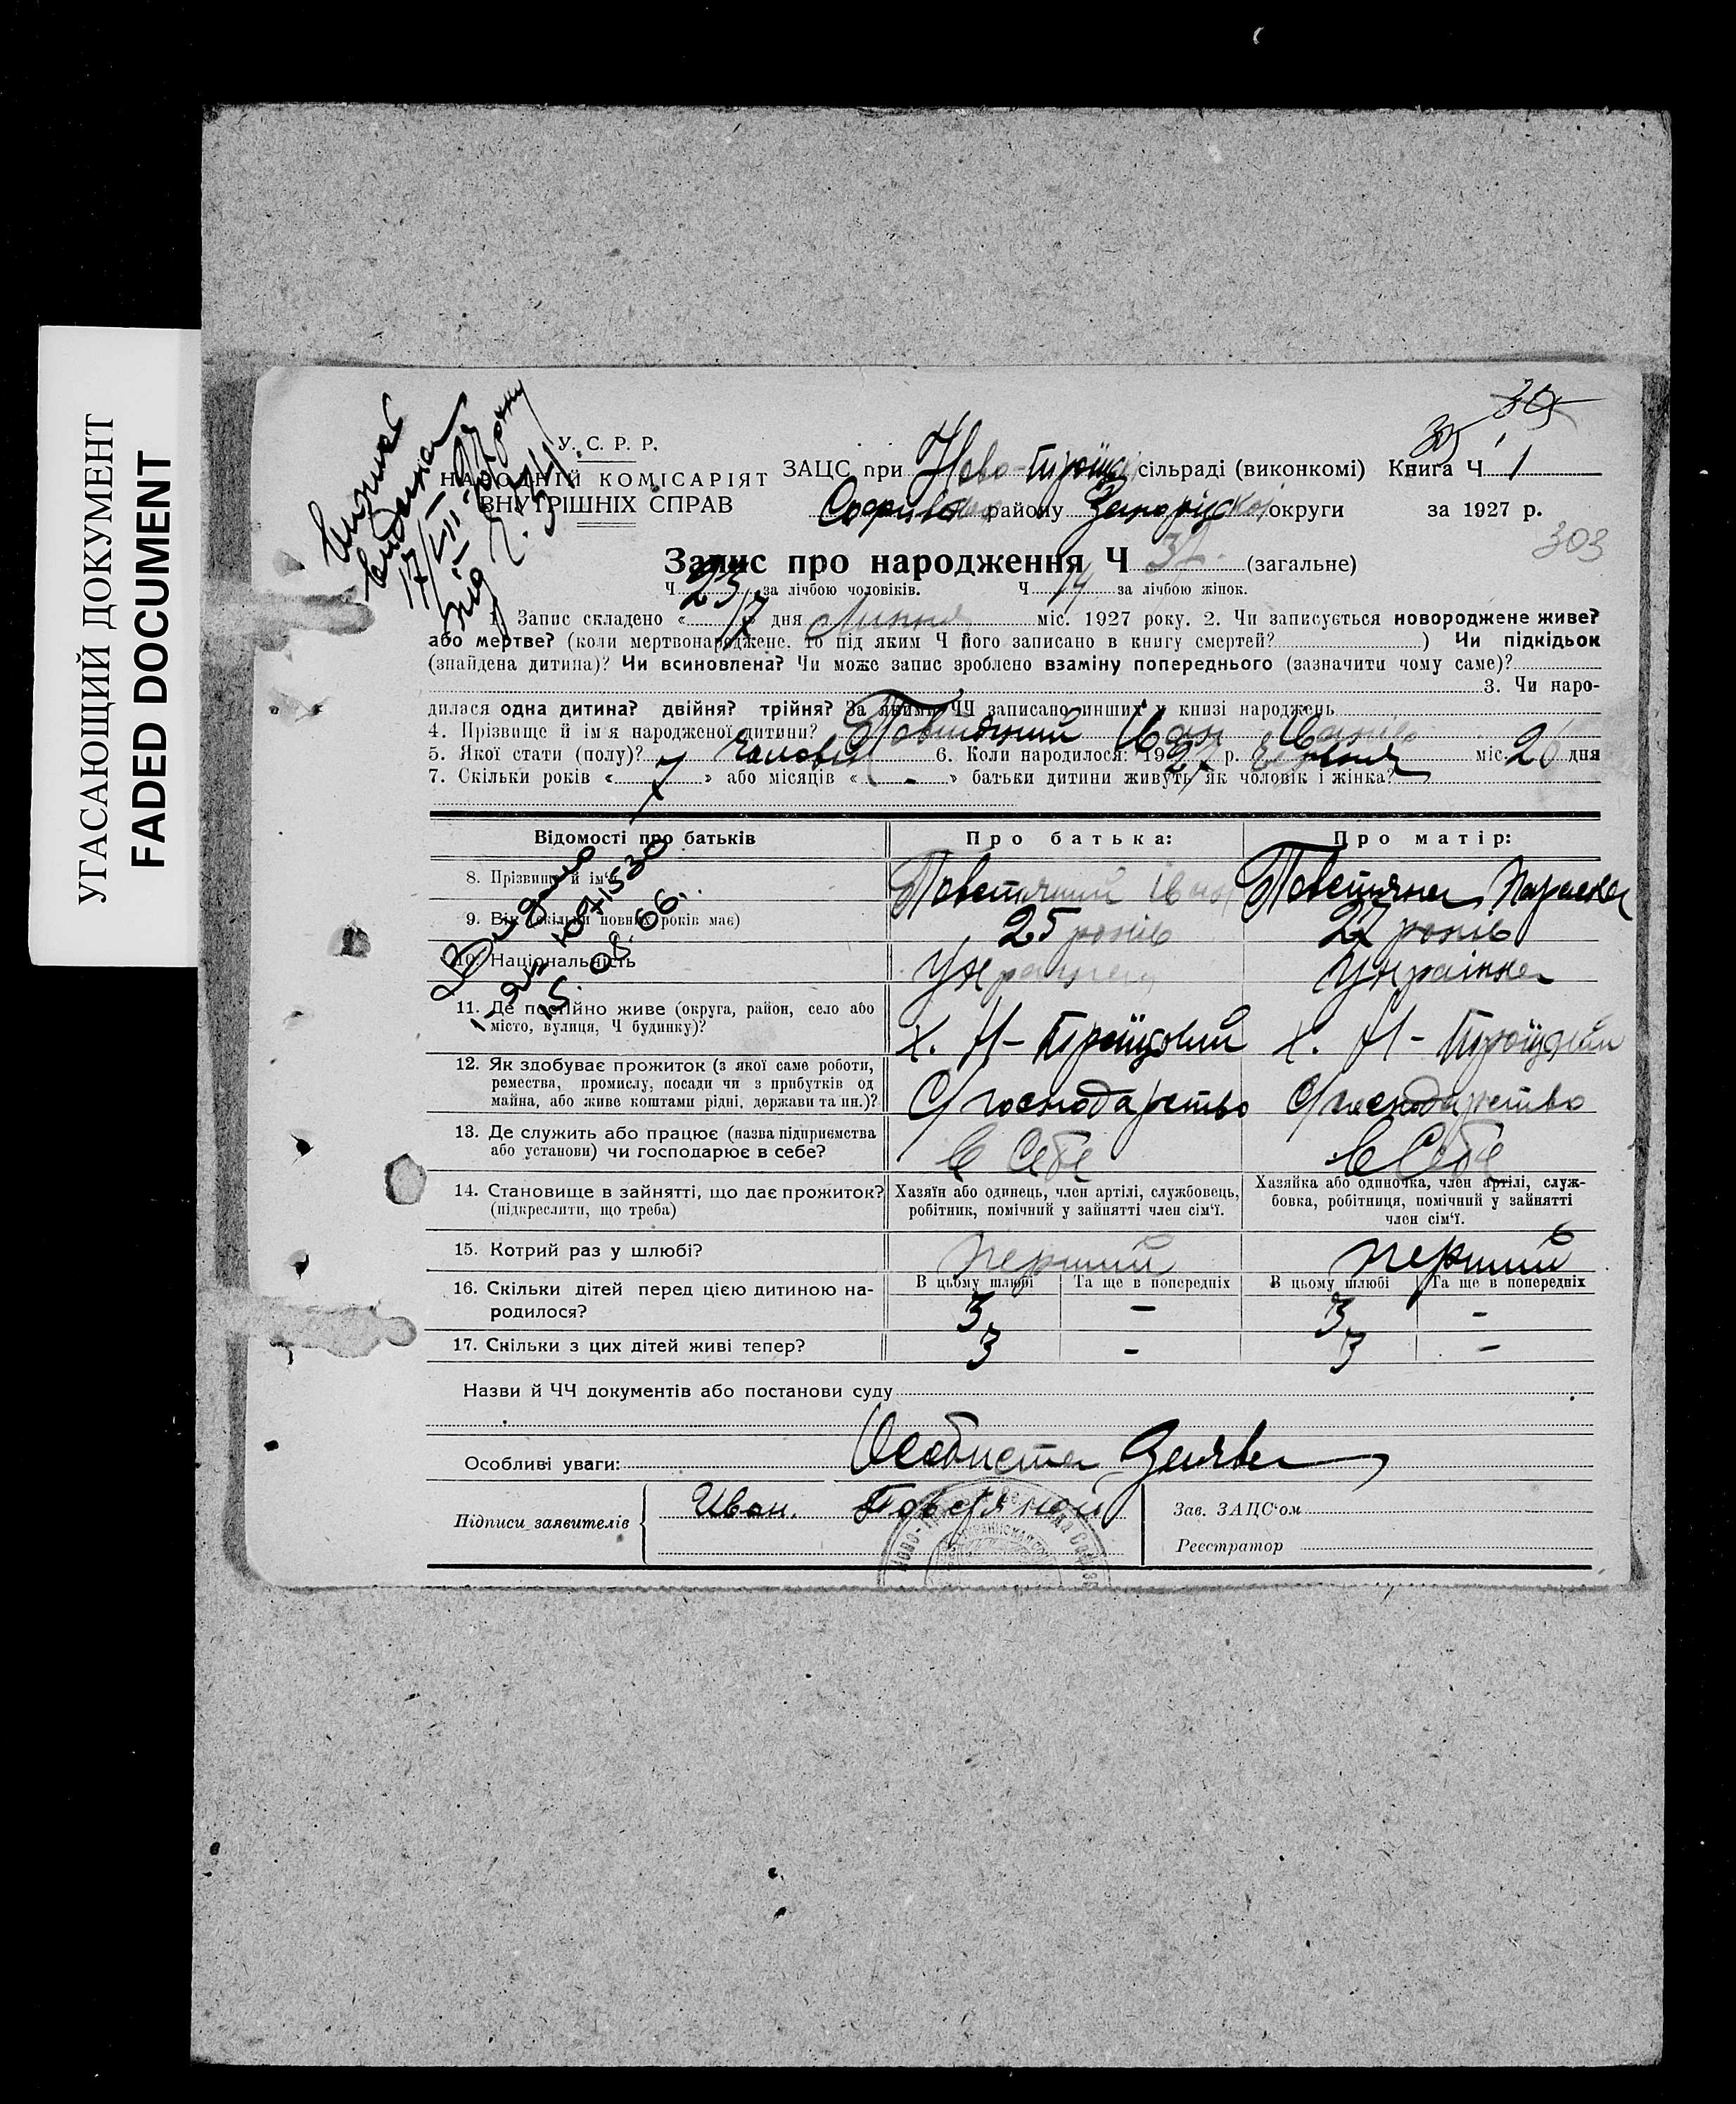 УГАСАЮЩИЙ ДОКУМЕНТ
FADED DOCUMENT
305
305
У. С. Р. Р.
НАРОДНІЙ КОМІСАРІЯТ
ВНУТРІШНІХ СПРАВ
ЗАЦС при Ново-Троїцкій сільраді (виконкомі) Книга Ч 1
району Запорізкої округи за 1927 р.
303
Запис про народження Ч 37 (загальне)
Ч 23 за лічбою чоловіків. Ч 14 за лічбою жінок.
1. Запис складено « 7 » дня Липня міс. 1927 року. 2. Чи записується новороджене живе?
або мертве? (коли мертвонароджене, то під яким Ч його записано в книгу смертей? ) Чи підкідьок
(знайдена дитина)? Чи всиновлена? Чи може запис зроблено взаміну попереднього (зазначити чому саме)?
3. Чи наро-
дилася одна дитина? двійня? трійня? За якими ЧЧ записано инших у книзі народжень
4. Прізвище й ім'я народженої дитини? Повстяний Іван Іванів
5. Якої стати (полу)? 6. Коли народилося: 1927 р. Червня міс. 26 дня
7. Скільки років « 7 » або місяців « - » батьки дитини живуть як чоловік і жінка?
Відомості про батьків Про батька: Про матір:
8. Прізвище й ім'я Повстяний Іван Повстяна Параска
9. Вік (скільки повних років має) 25 років 27 років
10. Національність Українець Українка
11. Де постійно живе (округа, район, село або
місто, вулиця, Ч будинку)? х. Н-Троїцький х. Н-Троїцький
12. Як здобуває прожиток (з якої саме роботи,
ремества, промислу, посади чи з прибутків од
майна, або живе коштами рідні, держави та ин.)? С/господарство С/господарство
13. Де служить або працює (назва підприємства
або установи) чи господарює в себе? в Себе в Себе
14. Становище в зайнятті, що дає прожиток?
(підкреслити, що треба)
Хазяїн або одинець, член артілі, службовець,
робітник, помічний у зайнятті член сім'ї.
Хазяйка або одиночка, член артілі, служ-
бовка, робітниця, помічний у зайнятті
член сім'ї.
15. Котрий раз у шлюбі? перший перший
16. Скільки дітей перед цією дитиною на-
родилося?
В цьому шлюбі Та ще в попередніх В цьому шлюбі Та ще в попередніх
3 - 3 -
17. Скільки з цих дітей живі тепер? 3 - 3 -
Назви й ЧЧ документів або постанови суду
Особливі уваги: Особиста Заява
Підписи заявителів Иван. Повстяной
Зав. ЗАЦС'ом
Реєстратор